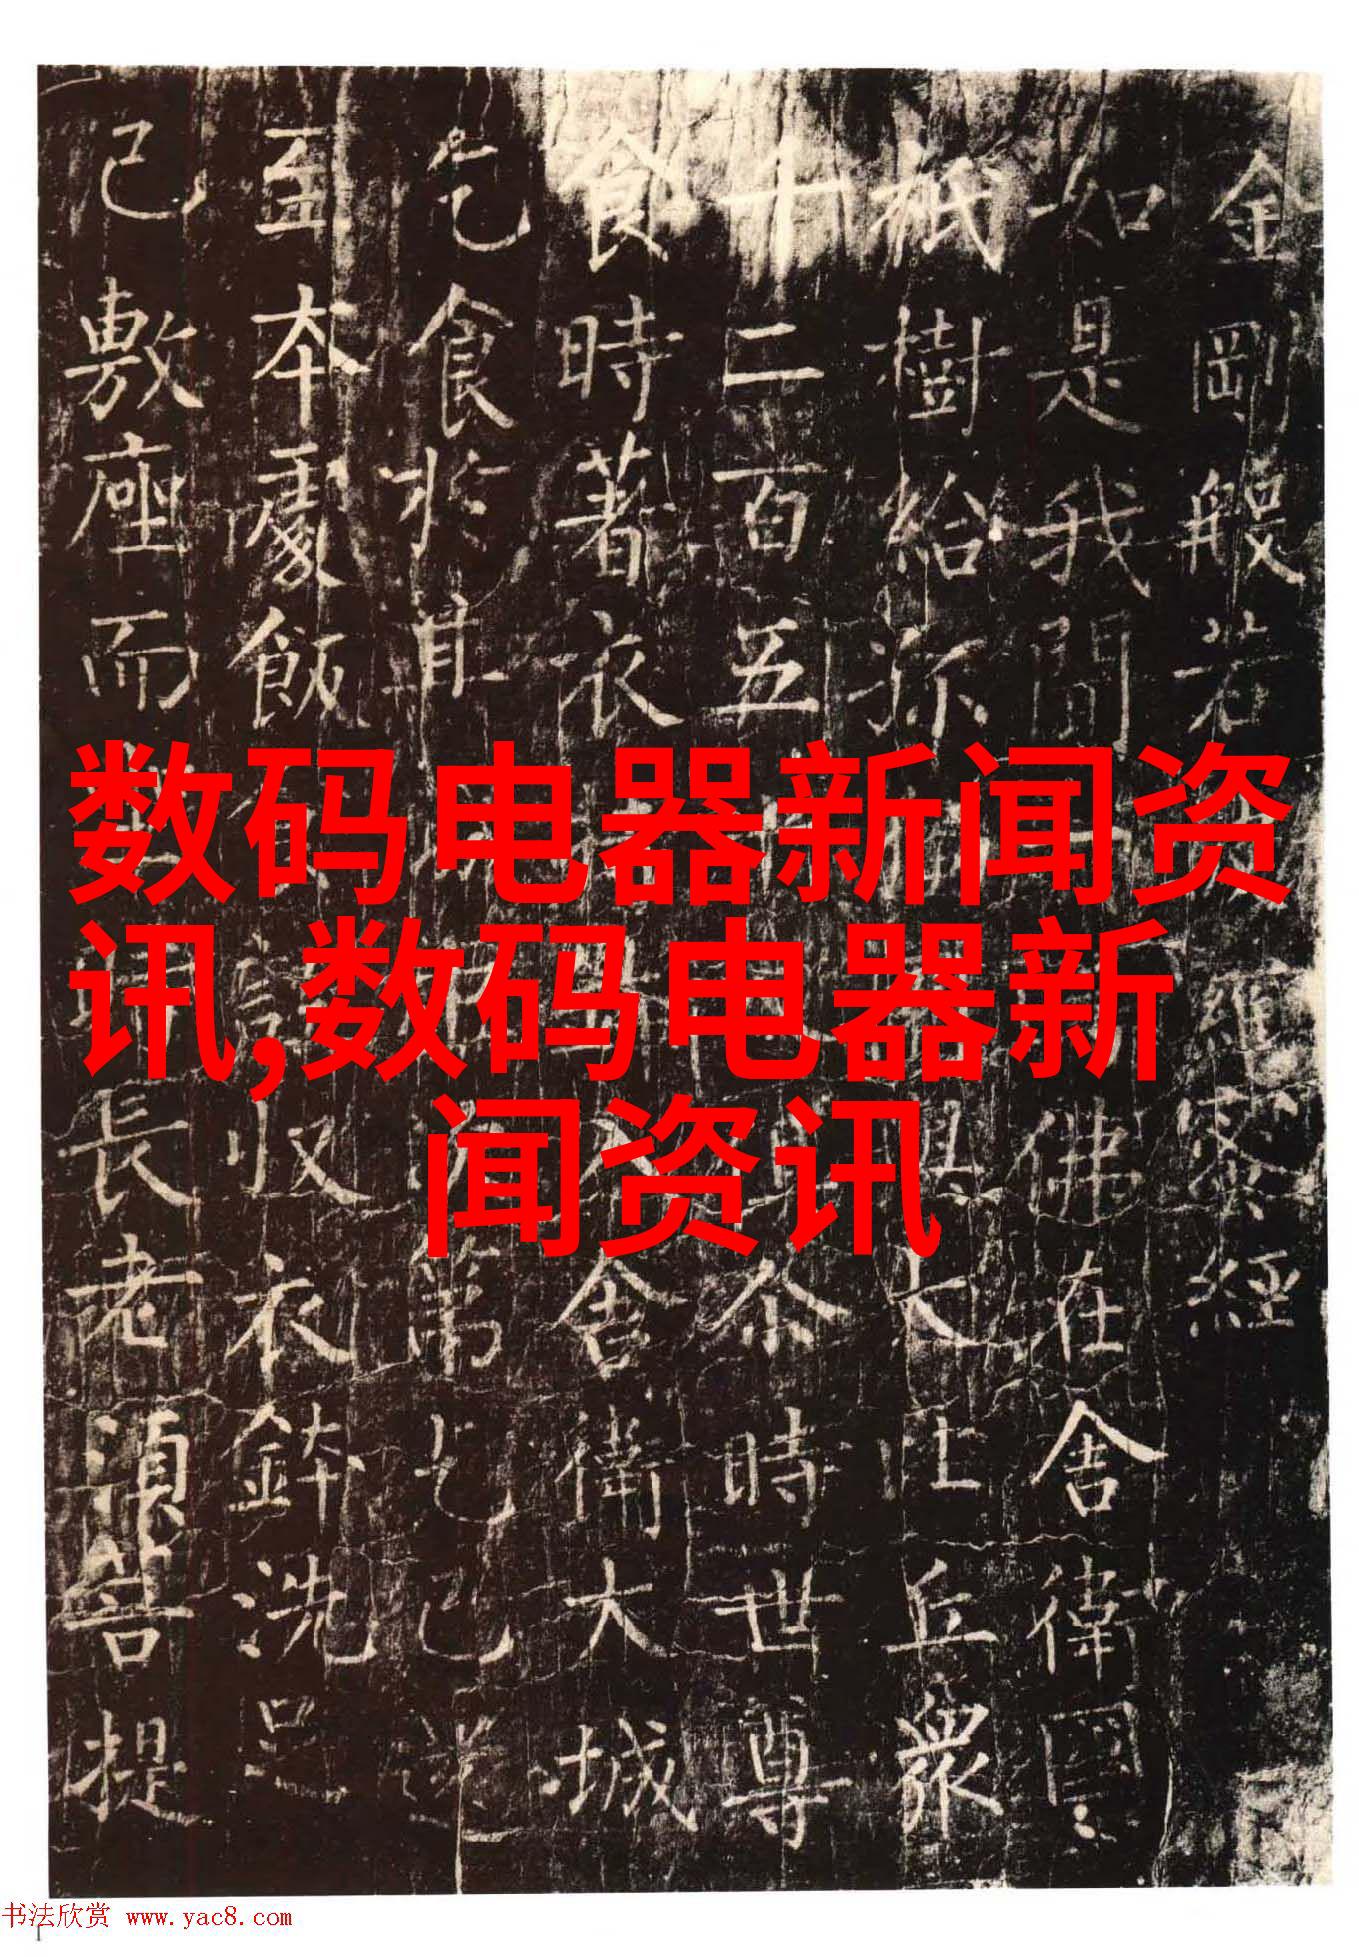 金剛般若羅蜜經
如是我聞佛在舍衛國
祇樹給孤大比丘眾
十二百五尒時世尊
食時著衣舍衛大城
乞食於其第乞已還
至本處飯訖收衣鉢洗足
已敷座而長老須菩提
数码电器新闻资
讯,数码电器新
闻资讯
书法欣赏 www.yac8.com